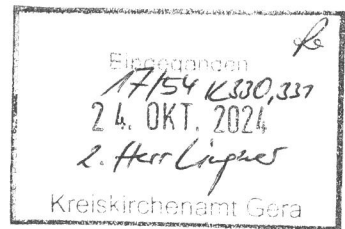 Eingegangen
17/54 K330,331
24. OKT. 2024
2. Herr
Kreiskirchenamt Gera